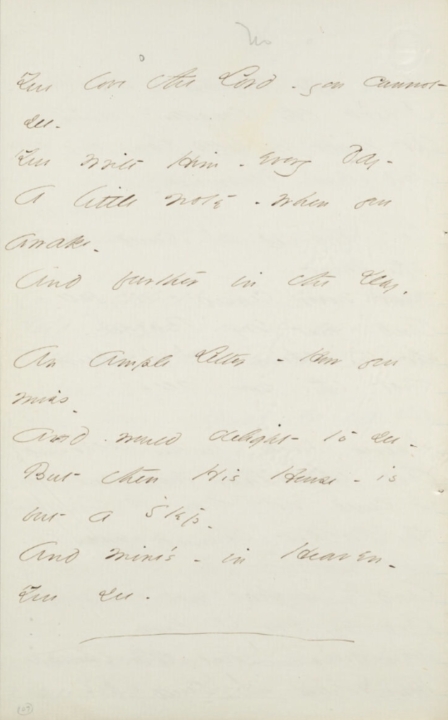 You love the Lord - you cannot -
see -
You write Him - every day -
A little note - when you
awake -
And further in the Day.
An Ample Letter - How you
miss -
And would delight - to see -
But then His House - is
but a Step -
And mine's - in Heaven -
You see.